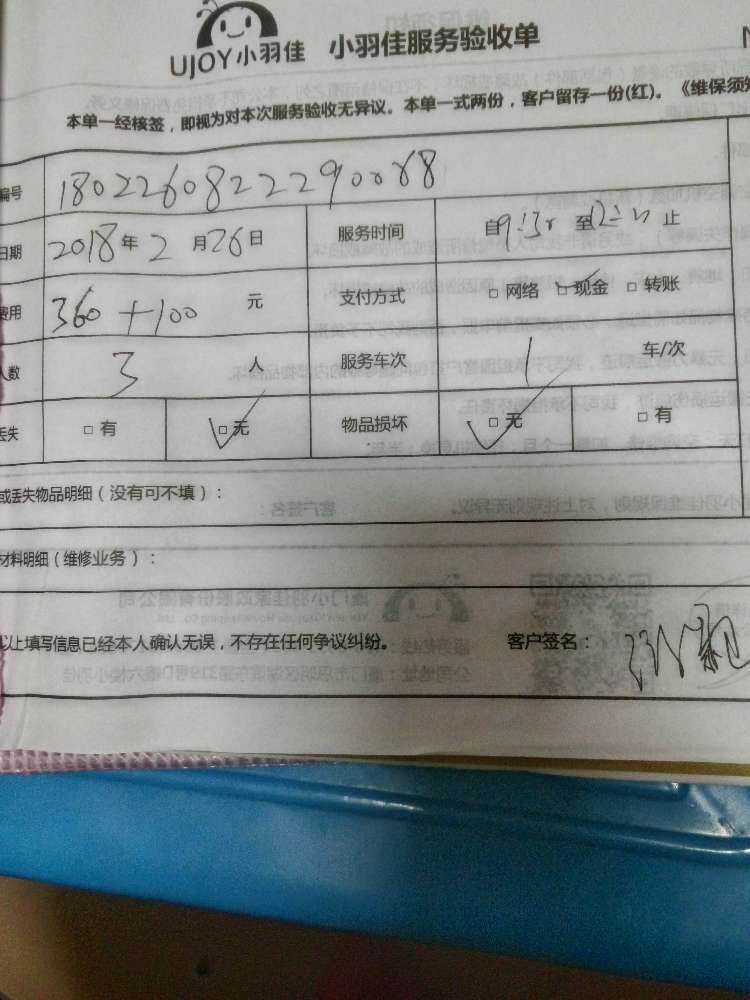 UJOY小羽佳 小羽佳服务验收单
本单一经核签，即视为对本次服务验收无异议。本单一式两份，客户留存一份(红)。《维保须知
编号 18022608222290088
日期 2018年2月26日 服务时间 自9:30 至 止
费用 360+100 元 支付方式 □ 网络 □ 现金 □ 转账
人数 3 人 服务车次 1 车/次
丢失 □ 有 □ 无 物品损坏 □ 无 □ 有
或丢失物品明细（没有可不填）：
材料明细（维修业务）：
以上填写信息已经本人确认无误，不存在任何争议纠纷。 客户签名：